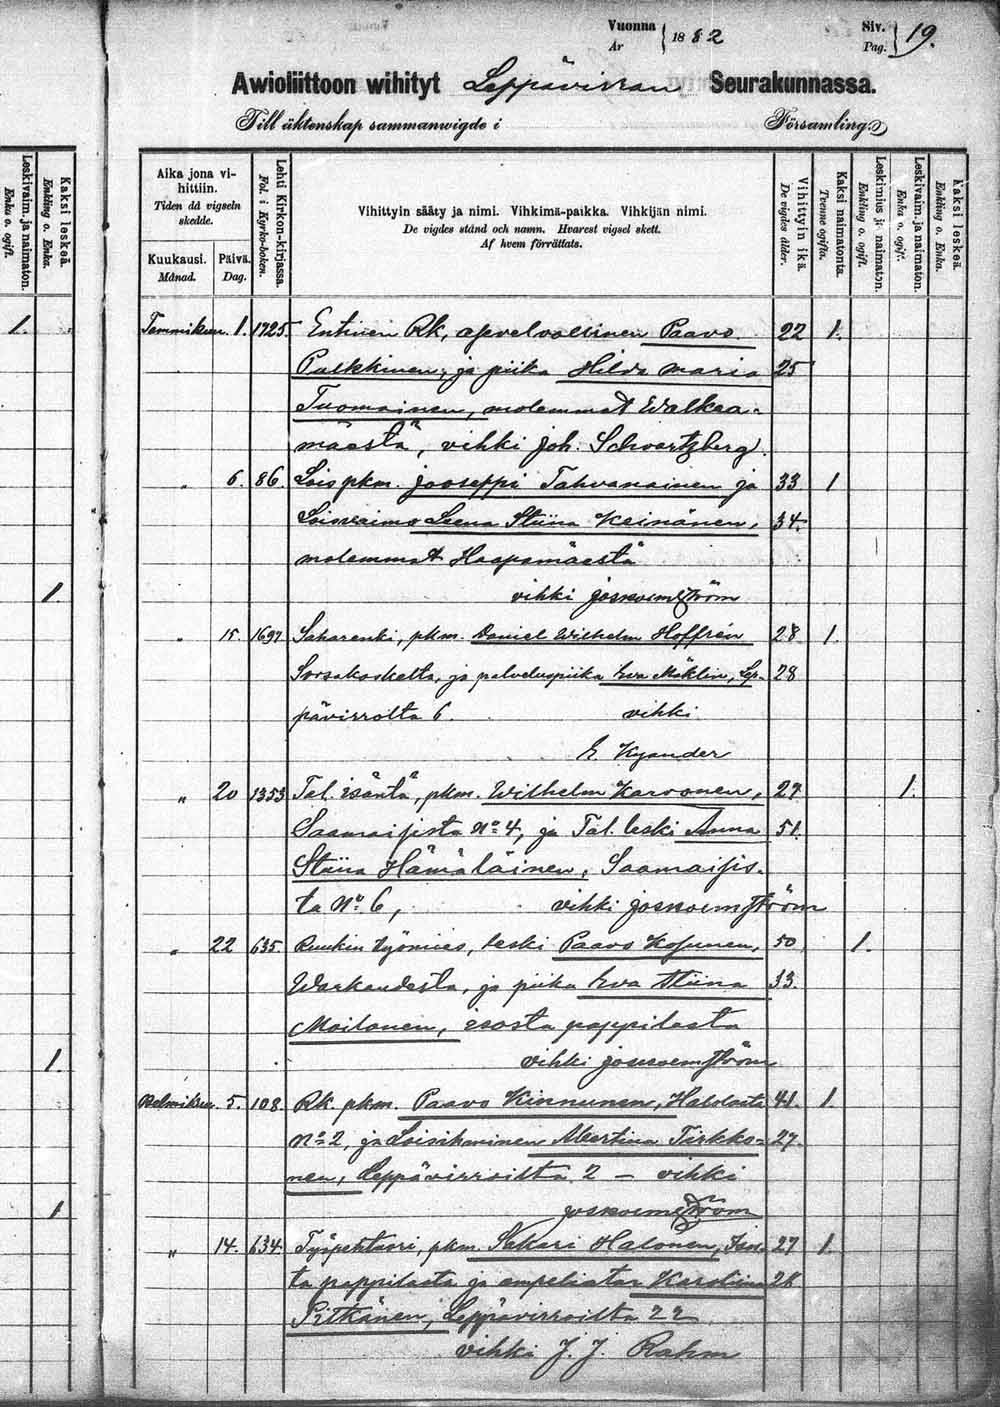 Vuonna
År
1882
Siv.
Pag.
19.
Awioliittoon wihityt Leppävirran Seurakunnassa.
Till äktenskap sammanwigde i Församling.
Leskivaim. ja naimaton.
Enka o. ogift.
Kaksi leskeä.
Enkling o. Enka.
Aika jona vi-
hittiin.
Tiden då vigseln
skedde.
Kuukausi.
Månad.
Päivä.
Dag.
Lehti Kirkon-kirjassa.
Fol. i Kyrko-boken.
Vihittyin sääty ja nimi. Vihkimä-paikka. Vihkijän nimi.
De vigdes stånd och namn. Hvarest vigsel skett.
Af hvem förrättats.
Vihittyin ikä.
De vigdes ålder.
Kaksi naimatonta.
Tvenne ogifta.
Leskimies ja naimaton.
Enkling o. ogift.
Leskivaim. ja naimaton.
Enka o. ogift.
Kaksi leskeä.
Enkling o. Enka.
1. Tammikuu 1. 1725. Entinen Rk, asevelvollinen Paavo 22 1.
Pulkkinen, ja piika Hilda Maria 25
Tuomainen, molemmat Walkea-
mäestä, vihki Joh. Schwartzberg.
" 6. 86. Lois pkm. Jooseppi Tahvanainen ja 33 1
Loisvaimo Leena Stiina Keinänen, 34.
molemmat Haapamäestä
1. vihki
" 15. 1697 Saharenki, pkm. Daniel Wilhelm Hoffrén 28 1.
Sorsakoskelta, ja palveluspiika Eva Mäklin, Lep- 28
pävirroilta 6. vihki
E. Kyander
" 20 1353 Tal. isäntä, pkm. Wilhelm Karvonen, 27 1.
Saamaisista No 4, ja Tal. leski Anna 51.
Stiina Hämäläinen, Saamaisis-
ta No 6, vihki
" 22 635. Ruukin työmies, leski Paavo Kosunen, 50 1.
Warkaudesta, ja piika Eva Stiina 33.
Moilanen, isosta pappilasta
1. vihki
Helmikuu 5. 108. Rk. pkm. Paavo Kinnunen, 41. 1.
No 2, ja Loisihminen Albertina Tirkko- 27.
nen, Leppävirroilta 2 – vihki
1
" 14. 634. pkm. Sakari Halonen, Isos- 27 1.
ta pappilasta ja Karoliina 28
Pitkänen, Leppävirroilta 22
vihki J. J. Rahm